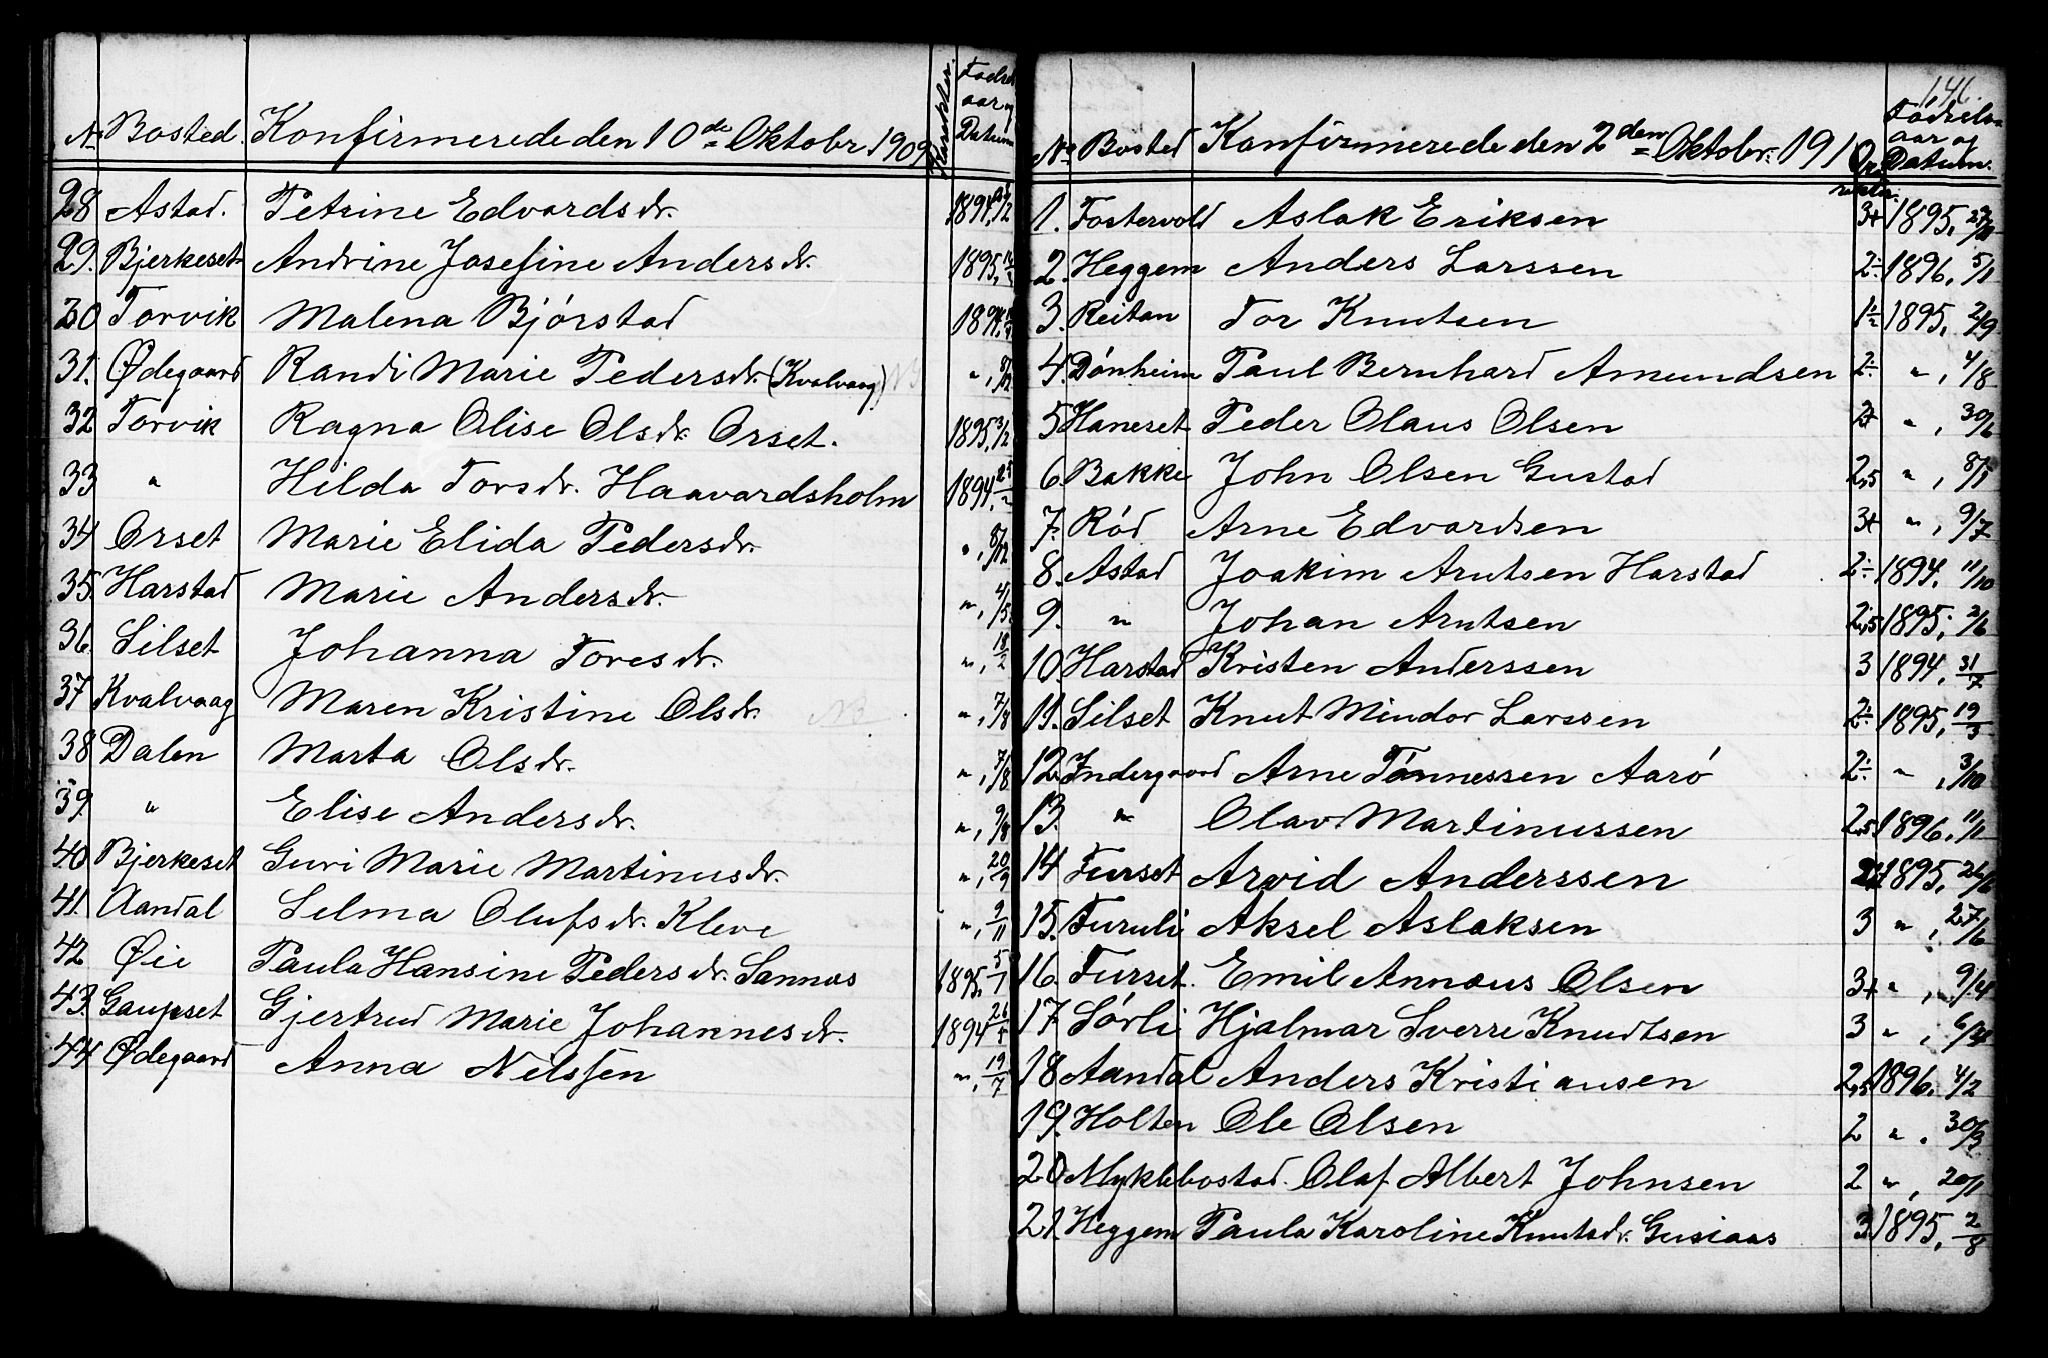 No Bosted. Konfirmerede den 10de Oktobr 1909 Karakter. Fødsels aar og Datum
28 Astad. Petrine Edvardsdr. 1894,
29. Bjerkeset Andrine Josefine Andersdr. 1895,
30 Torvik Malena Bjørstad 1894,
31. Ødegaard Randi Marie Pedersdr. (Kvalvaag) „,
32 Torvik Ragna Olise Olsdr. Orset. 1895, 3/2
33 „ Hilda Torsdr. Haavardsholm 1894,
34 Orset Marie Elida Pedersdr. „, 8/12
35. Harstad Marie Andersdr. „, 4/5.
36. Silset Johanna Toresdr. „, 18/2
37 Kvalvaag Maren Kristine Olsdr. NB. „, 7/8
38 Dalen Marta Olsdr. „, 7/8
39. „ Elise Andersdr. „, 9/8
40. Bjerkeset Guri Marie Martinusdr. „, 20/9
41. Aandal Selma Olufsdr. Kleve „, 9/11
42 Øie Paula Hansine Pedersdr. Sannæs 1895, 5/1
43. Gaupset Gjertrud Marie Johannesdr. 1894 26/5
44 Ødegaard Anna Nilssen „, 19/7
146.
No Bosted Konfirmerede den 2den Oktober. 1910 Fødsels aar og Datum.
1. Fostervold Aslak Eriksen 3+ 1895,
2. Heggem Anders Larssen 2÷ 1896, 5/1
3. Reitan Tor Knutsen 1½ 1895, 2/9
4. Dønheim Paul Bernhard Amundsen 2÷ „, 4/8
5 Haneset Peder Olaus Olsen 2+ „, 30/6
6. Bakke John Olsen Gustad 2,5 „, 8/5
7. Rød Arne Edvardsen 3+ „, 9/7
8. Astad Joakim Arntsen Harstad 2÷ 1894, 11/10
9. „ Johan Arntsen 2,5 1895, 2/6
10. Harstad Kristen Anderssen 3 1894, 31/7
11. Silset Knut Mindor Larssen 2÷ 1895, 19/3
12. Indergaard Arne Tønnessen Aarø 2÷ „, 3/10
13. „ Olav Martinussen 2,5 1896, 11/1
14 Furset Arvid Anderssen 2+ 1895, 26/6
15. Furuli Aksel Aslaksen 3 „, 27/6
16. Furset. Emil Annæus Olsen 3+ „, 9/4
17 Sørli Hjalmar Sverre Knudtsen 3 „,
18 Aandal Anders Kristiansen 2,5 1896, 4/2
19. Holten Ole Olsen 2 „, 30/3
20 Myklebostad. Olaf Albert Johnsen 2 „, 20/1
21. Heggem Paula Karoline Knutsdr. Gusiaas 3 1895, 2/8